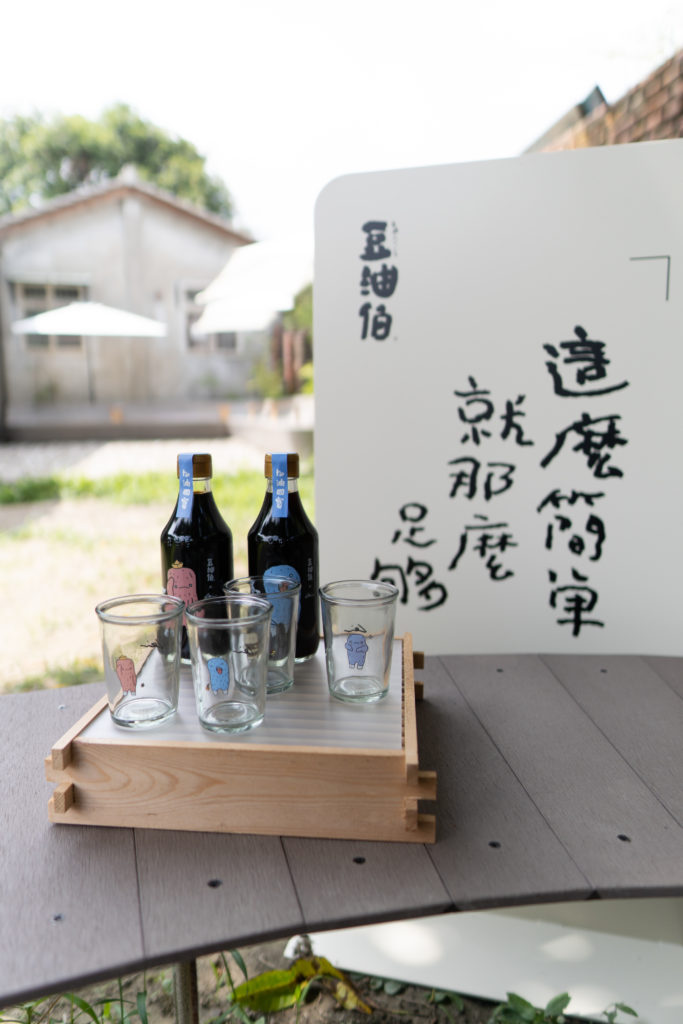 豆油伯
這麼簡單
就那麼
足夠
豆油伯